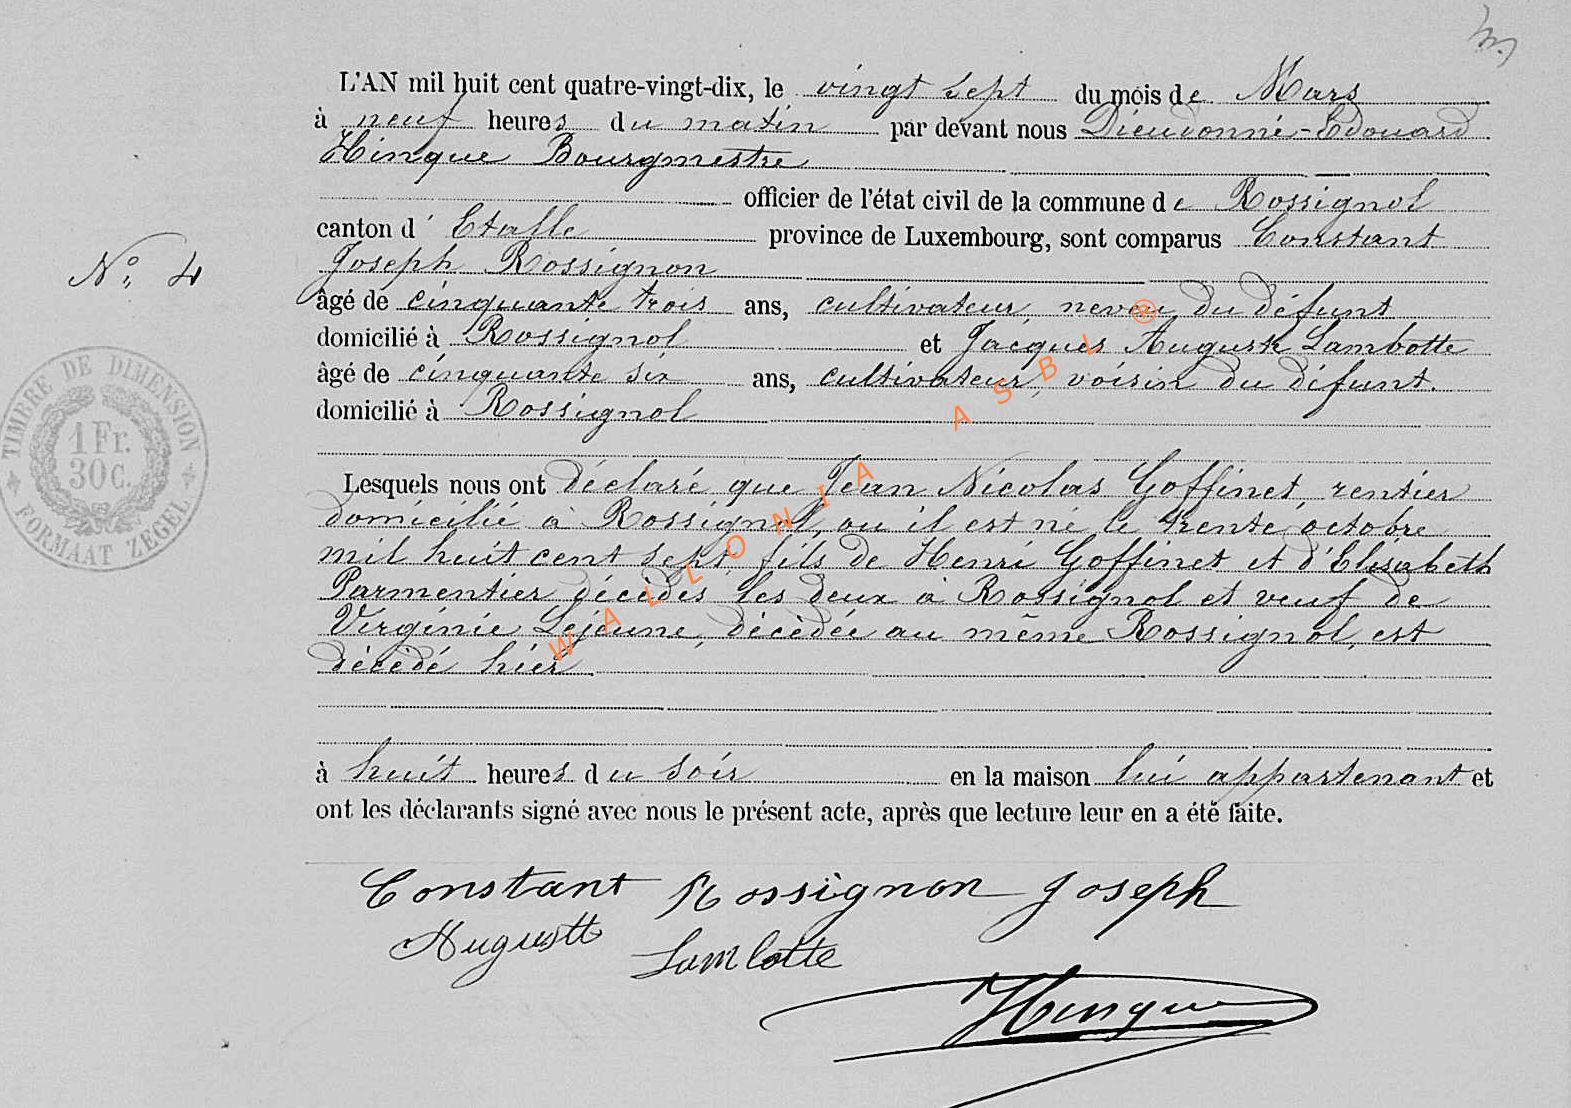 L'AN mil huit cent quatre-vingt-dix, le vingt sept du mois de Mars
à neuf heures du matin par devant nous Dieudonné-Edouard
Hinque Bourgmestre
officier de l'état civil de la commune de Rossignol
canton d'Etalle province de Luxembourg, sont comparus Constant
Joseph Rossignon
âgé de cinquante trois ans, cultivateur, neveu du défunt
domicilié à Rossignol et Jacques Auguste Lambotte
âgé de cinquante six ans, cultivateur, voisin du défunt.
domicilié à Rossignol
Lesquels nous ont déclaré que Jean Nicolas Goffinet, rentier
domicilié à Rossignol, ou il est né le trente octobre
mil huit cent sept, fils de Henri Goffinet et d'Elisabeth
Parmentier décédés les deux à Rossignol et veuf de
Virginie Lejeune, décédée au même Rossignol, est
décédé hier
à huit heures du soir en la maison lui appartenant et
ont les déclarants signé avec nous le présent acte, après que lecture leur en a été faite.
Constant Rossignon Joseph
Auguste Lambotte
Hinque
N° 4
TIMBRE DE DIMENSION
1 Fr.
30 C.
FORMAAT ZEGEL
WALLONIA ASBL ®